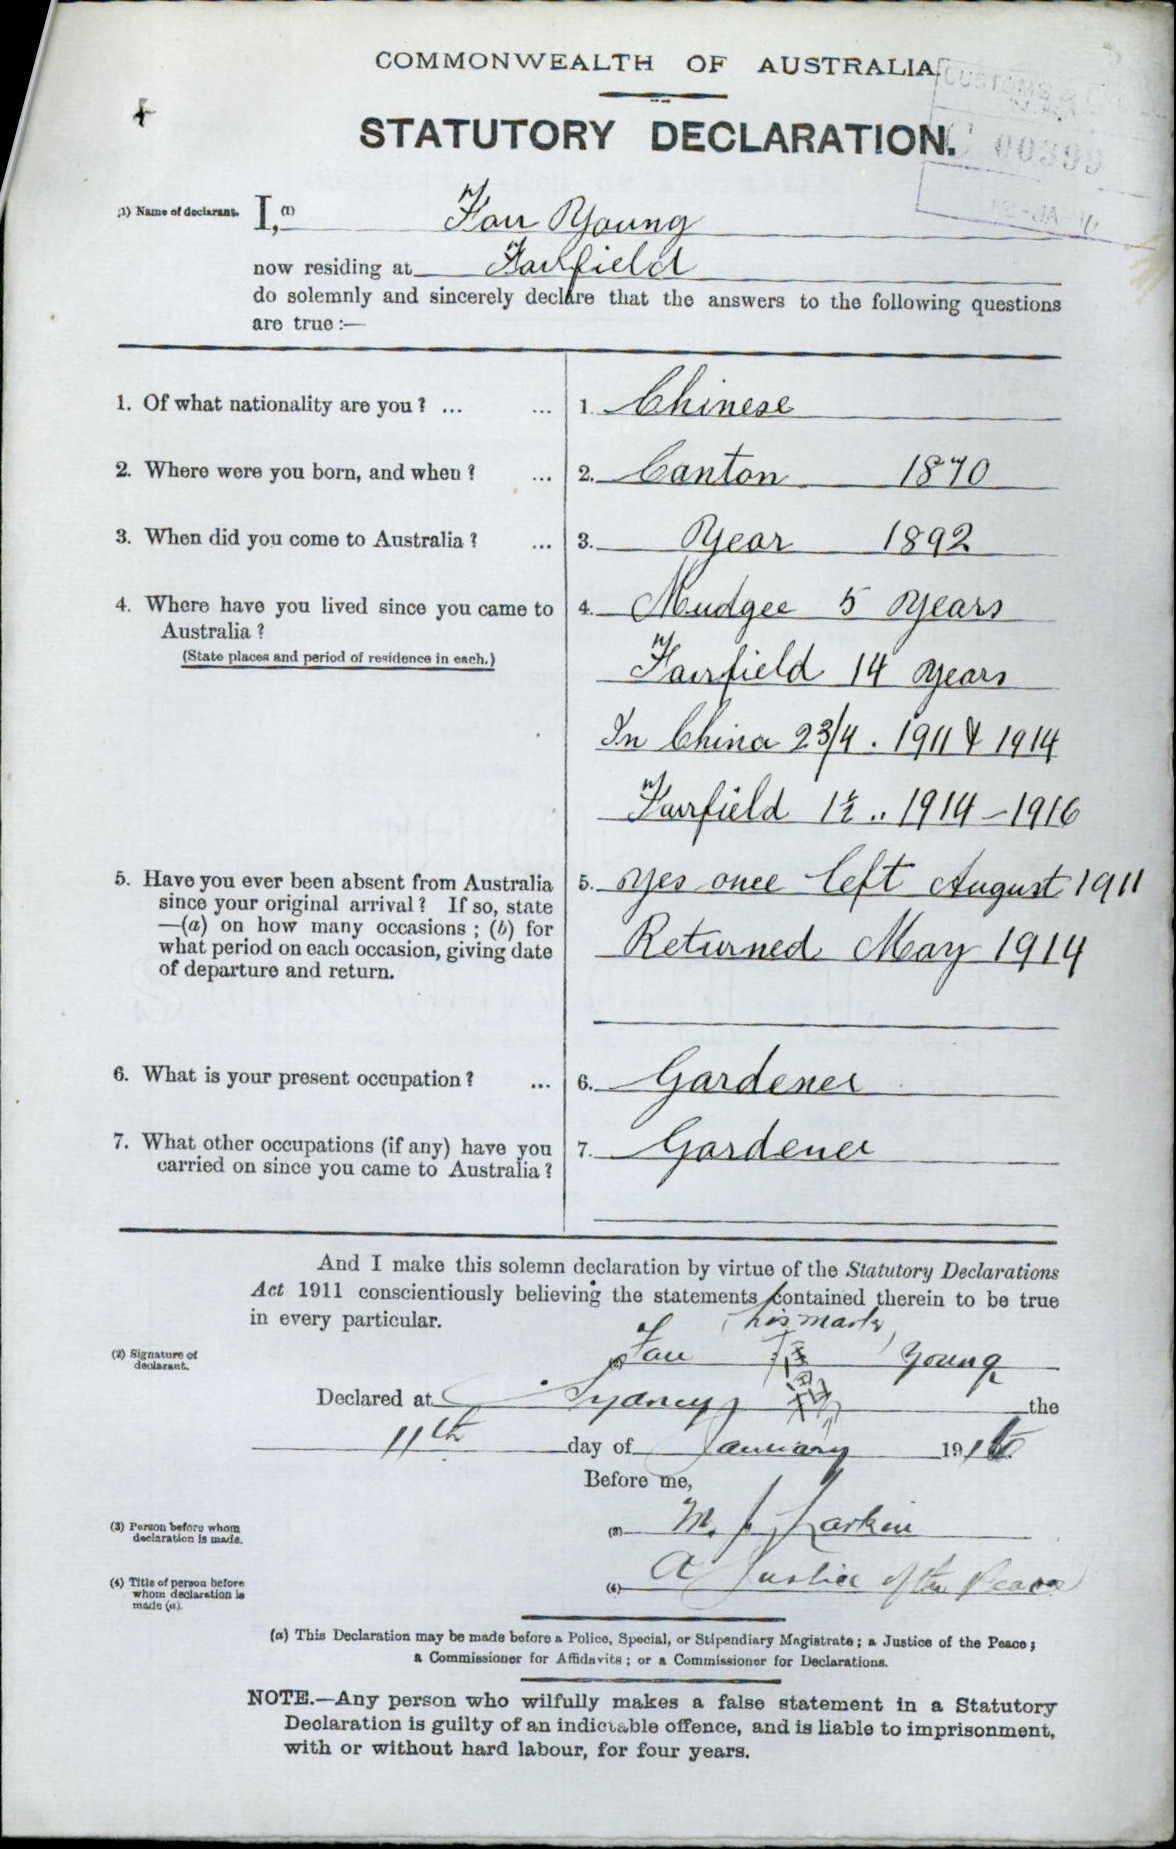 COMMONWEALTH OF AUSTRALIA.
STATUTORY DECLARATION.
(1) Name of declarant. I,(1) Fou Young
now residing at Fairfield
do solemnly and sincerely declare that the answers to the following questions
are true :—
1. Of what nationality are you? ... ... 1. Chinese
2. Where were you born, and when? ... 2. Canton 1870
3. When did you come to Australia? ... 3. Year 1892
4. Where have you lived since you came to 4. Mudgee 5 Years
Australia?
(State places and period of residence in each.)
Fairfield 14 years
In China 2 3/4 . 1911 & 1914
Fairfield 1½ .. 1914 - 1916
5. Have you ever been absent from Australia 5. Yes once left August 1911
since your original arrival? If so, state
—(a) on how many occasions; (b) for
what period on each occasion, giving date
of departure and return.
Returned May 1914
6. What is your present occupation? ... 6. Gardener
7. What other occupations (if any) have you 7. Gardener
carried on since you came to Australia?
And I make this solemn declaration by virtue of the Statutory Declarations
Act 1911 conscientiously believing the statements contained therein to be true
in every particular.
his mark
(2) Signature of
declarant.
Fou Young
Declared at Sydney the
11th day of January 1916
Before me,
(3) Person before whom
declaration is made.
(3) M. J. Larkin
(4) Title of person before
whom declaration is
made (a).
(4) A Justice of the Peace
(a) This Declaration may be made before a Police, Special, or Stipendiary Magistrate; a Justice of the Peace;
a Commissioner for Affidavits; or a Commissioner for Declarations.
NOTE.—Any person who wilfully makes a false statement in a Statutory
Declaration is guilty of an indictable offence, and is liable to imprisonment,
with or without hard labour, for four years.